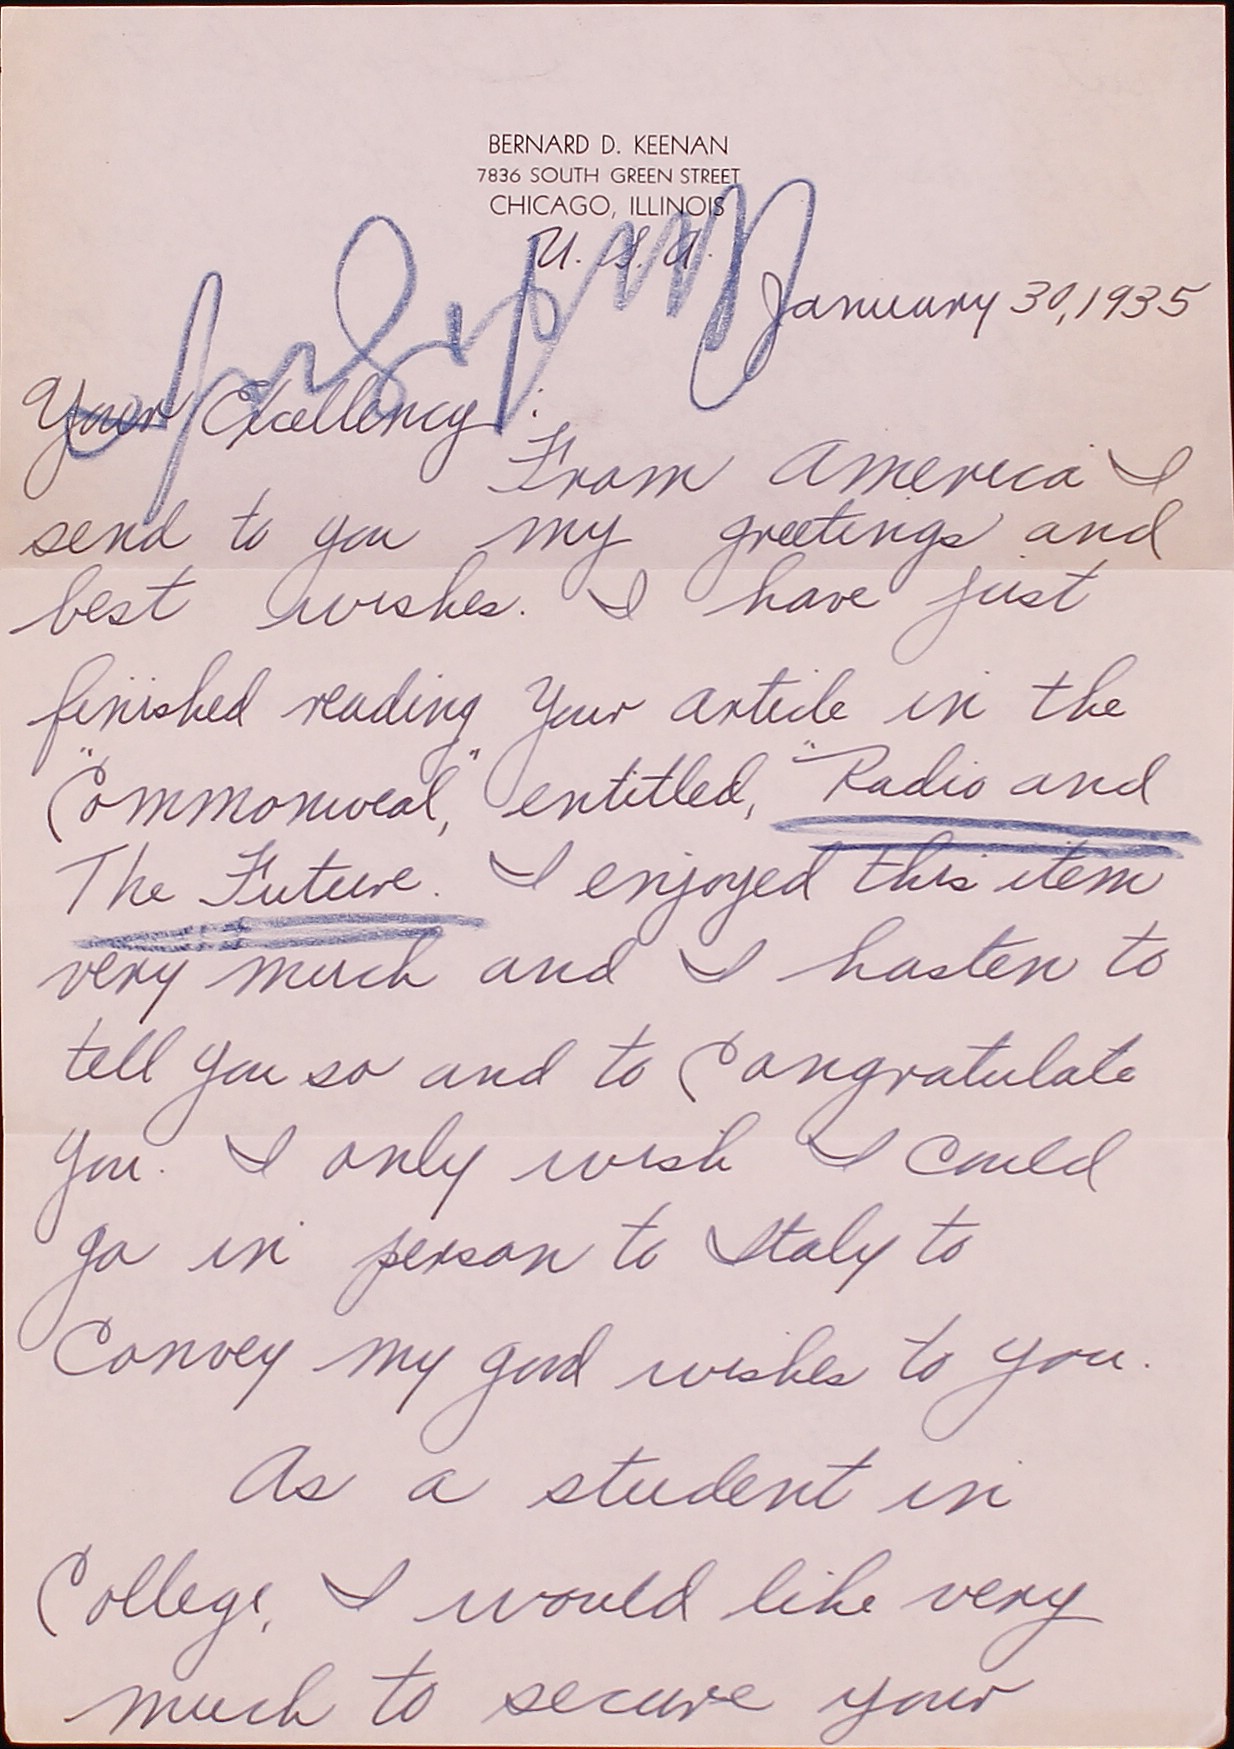 BERNARD D. KEENAN
7836 SOUTH GREEN STREET
CHICAGO, ILLINOIS
U. S. A.
January 30, 1935
Your Excellency:
From America I
send to you my greetings and
best wishes. I have just
finished reading your article in the
"Commonweal," entitled, "Radio and
The Future. I enjoyed this item
very much and I hasten to
tell you so and to Congratulate
you. I only wish I could
go in person to Italy to
Convey my good wishes to you.
As a student in
College, I would like very
much to secure your